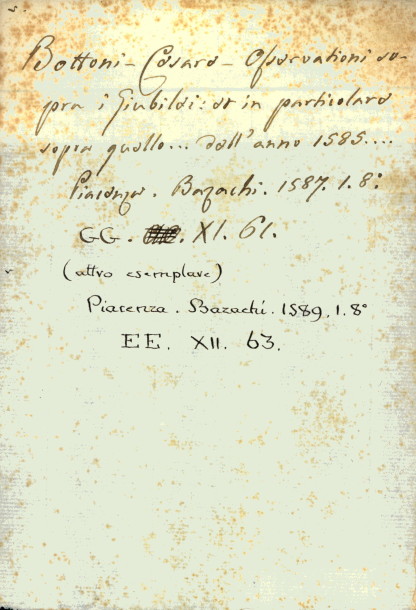 Bottoni - Cesare - Osservationi so-
pra i Giubilei: et in particolare
sopra quello... dell'anno 1585....
Piacenza. Bazachi. 1587. 1. 8°.
GG. XI. 61.
(altro esemplare)
Piacenza. Bazachi. 1589. 1. 8°
EE. XII. 63.